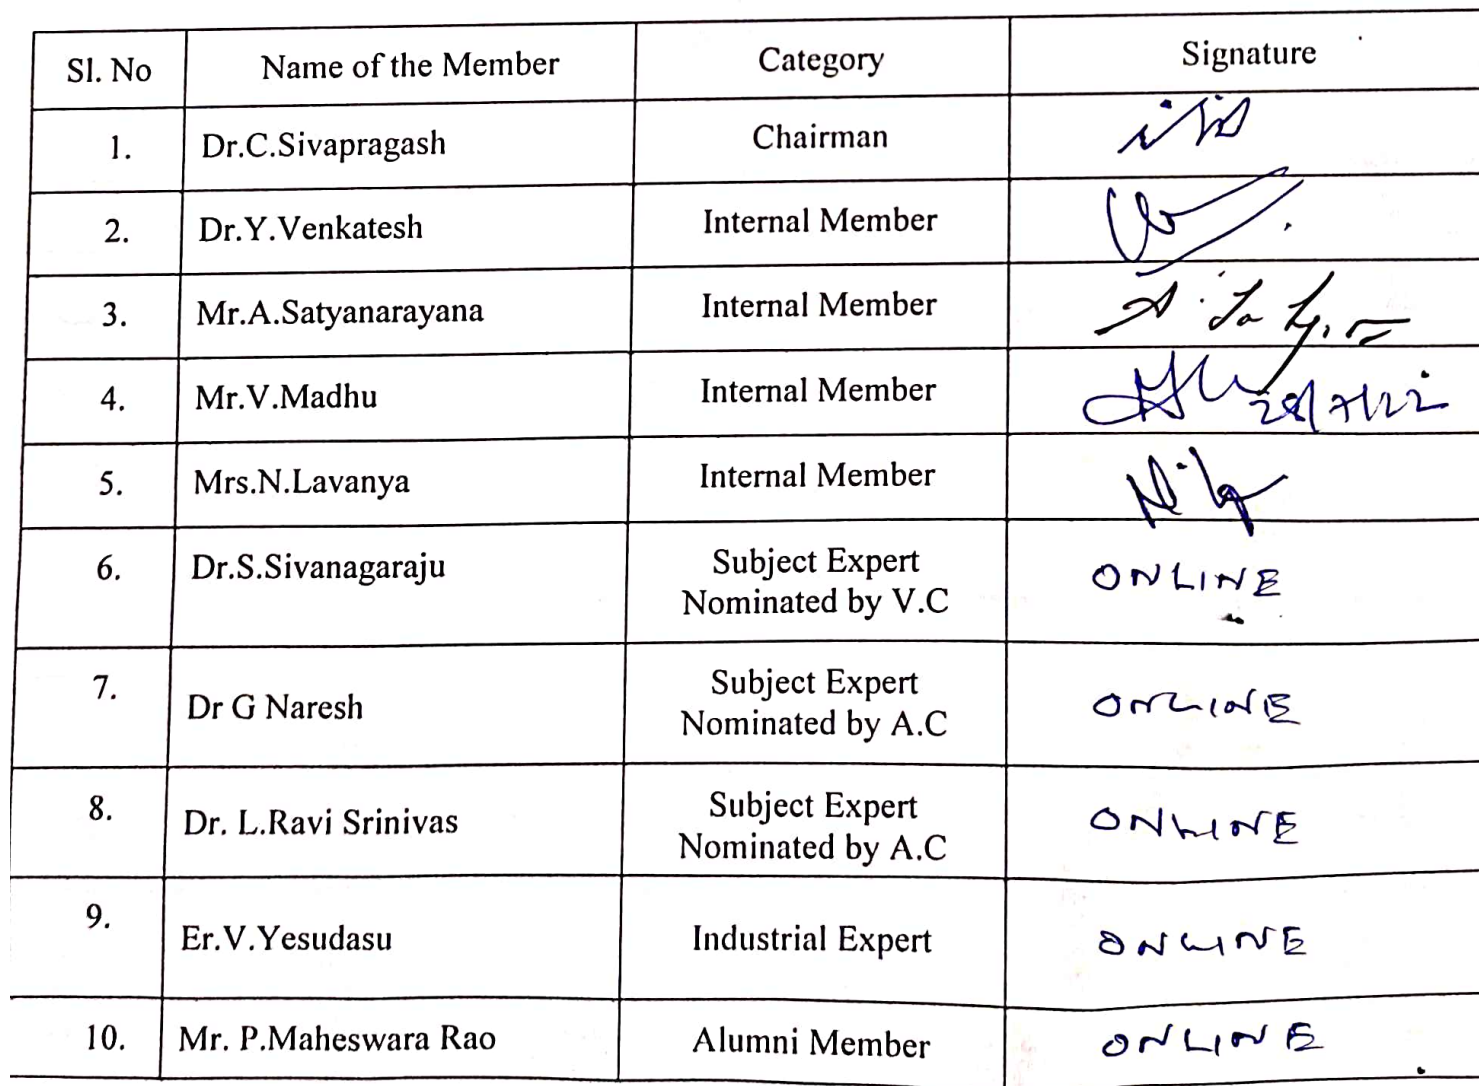 Sl. No Name of the Member Category Signature
1. Dr.C.Sivapragash Chairman
2. Dr.Y.Venkatesh Internal Member
3. Mr.A.Satyanarayana Internal Member
4. Mr.V.Madhu Internal Member 28/7/22
5. Mrs.N.Lavanya Internal Member
6. Dr.S.Sivanagaraju Subject Expert ONLINE
Nominated by V.C
7. Dr G Naresh Subject Expert ONLINE
Nominated by A.C
8. Dr. L.Ravi Srinivas Subject Expert ONLINE
Nominated by A.C
9. Er.V.Yesudasu Industrial Expert ONLINE
10. Mr. P.Maheswara Rao Alumni Member ONLINE